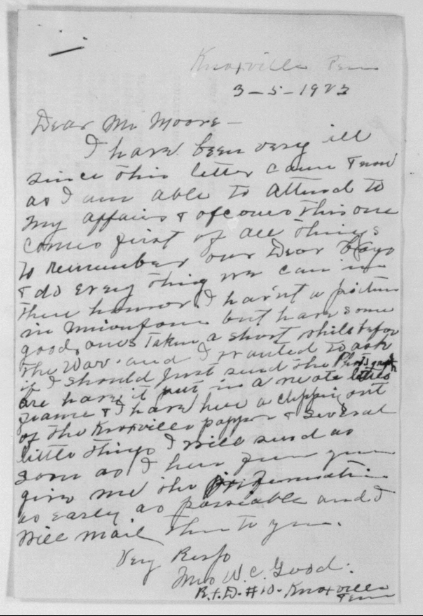 Knoxville Tenn
3-5-1923
Dear Mr. Moore -
I have been very ill
since this letter came & now
as I am able to attend to
my affairs & of cours this one
comes first of all things
to remember our Dear Boys
& do every thing we can in
there honor I havn't a picture
in uniform but have some
good ones taken a short while before
the War. and I wanted to ask
if I should just send the Photograph
are have it put in a neate little
frame & I have here a clipping out
of the Knoxville papper & several
little things I will send as
soon as I hear from you
give me the information
as early as possiable and I
will mail them to you.
Very Resp
Mrs W.C. Good.
R.F.D. #10 - Knoxville
Tenn